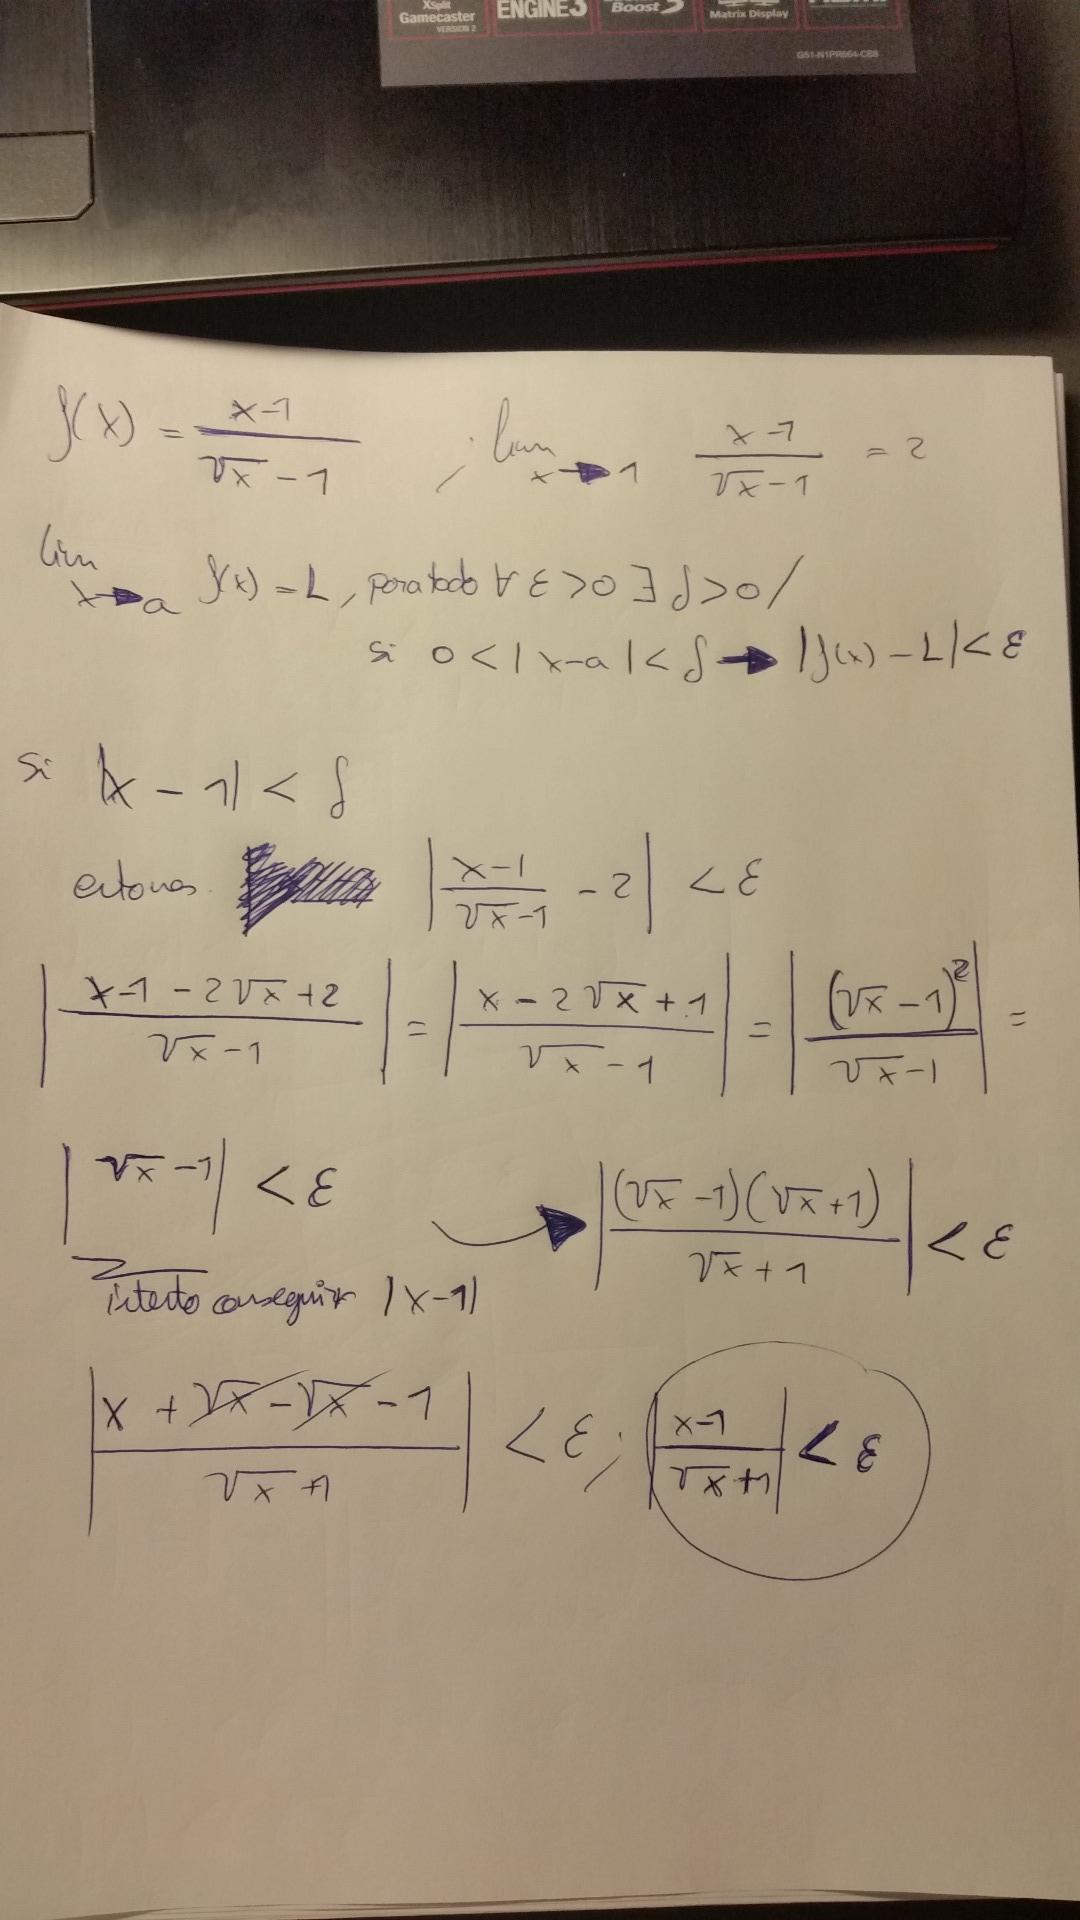 XSplit
Gamecaster
VERSION 2
ENGINE3
Boost 3
Matrix Display
f(x) = (x-1)/(√x - 1) ; lim x→1 (x-1)/(√x-1) = 2
lim x→a f(x) = L, para todo ∀ ε > 0 ∃ δ > 0 /
si 0 < | x-a | < δ → | f(x) - L | < ε
si |x - 1| < δ
entonces | (x-1)/(√x-1) - 2 | < ε
| (x-1-2√x+2)/(√x-1) | = | (x-2√x+1)/(√x-1) | = | (√x-1)²/(√x-1) | =
| √x-1 | < ε → | (√x-1)(√x+1)/(√x+1) | < ε
intento conseguir |x-1|
| (x+√x-√x-1)/(√x+1) | < ε ; | (x-1)/(√x+1) | < ε